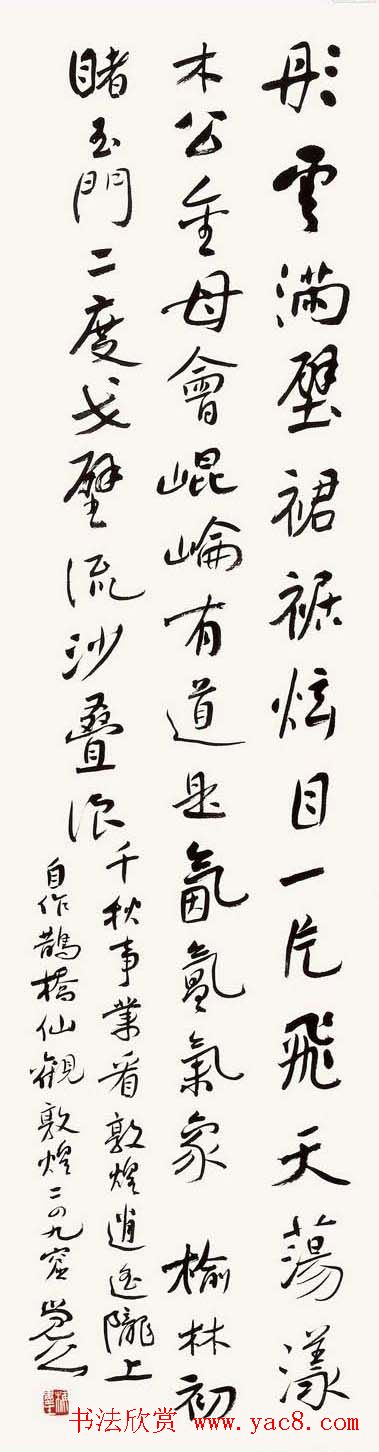 彤雲滿壁裙裾炫目一片飛天蕩漾
木公金母會崐崘有道是氤氲氣象 榆林初
睹玉門二度戈壁流沙疊浪
千秋事業看敦煌逍遥隴上
自作鵲橋仙觀敦煌二四九窟
书法欣赏 www.yac8.com